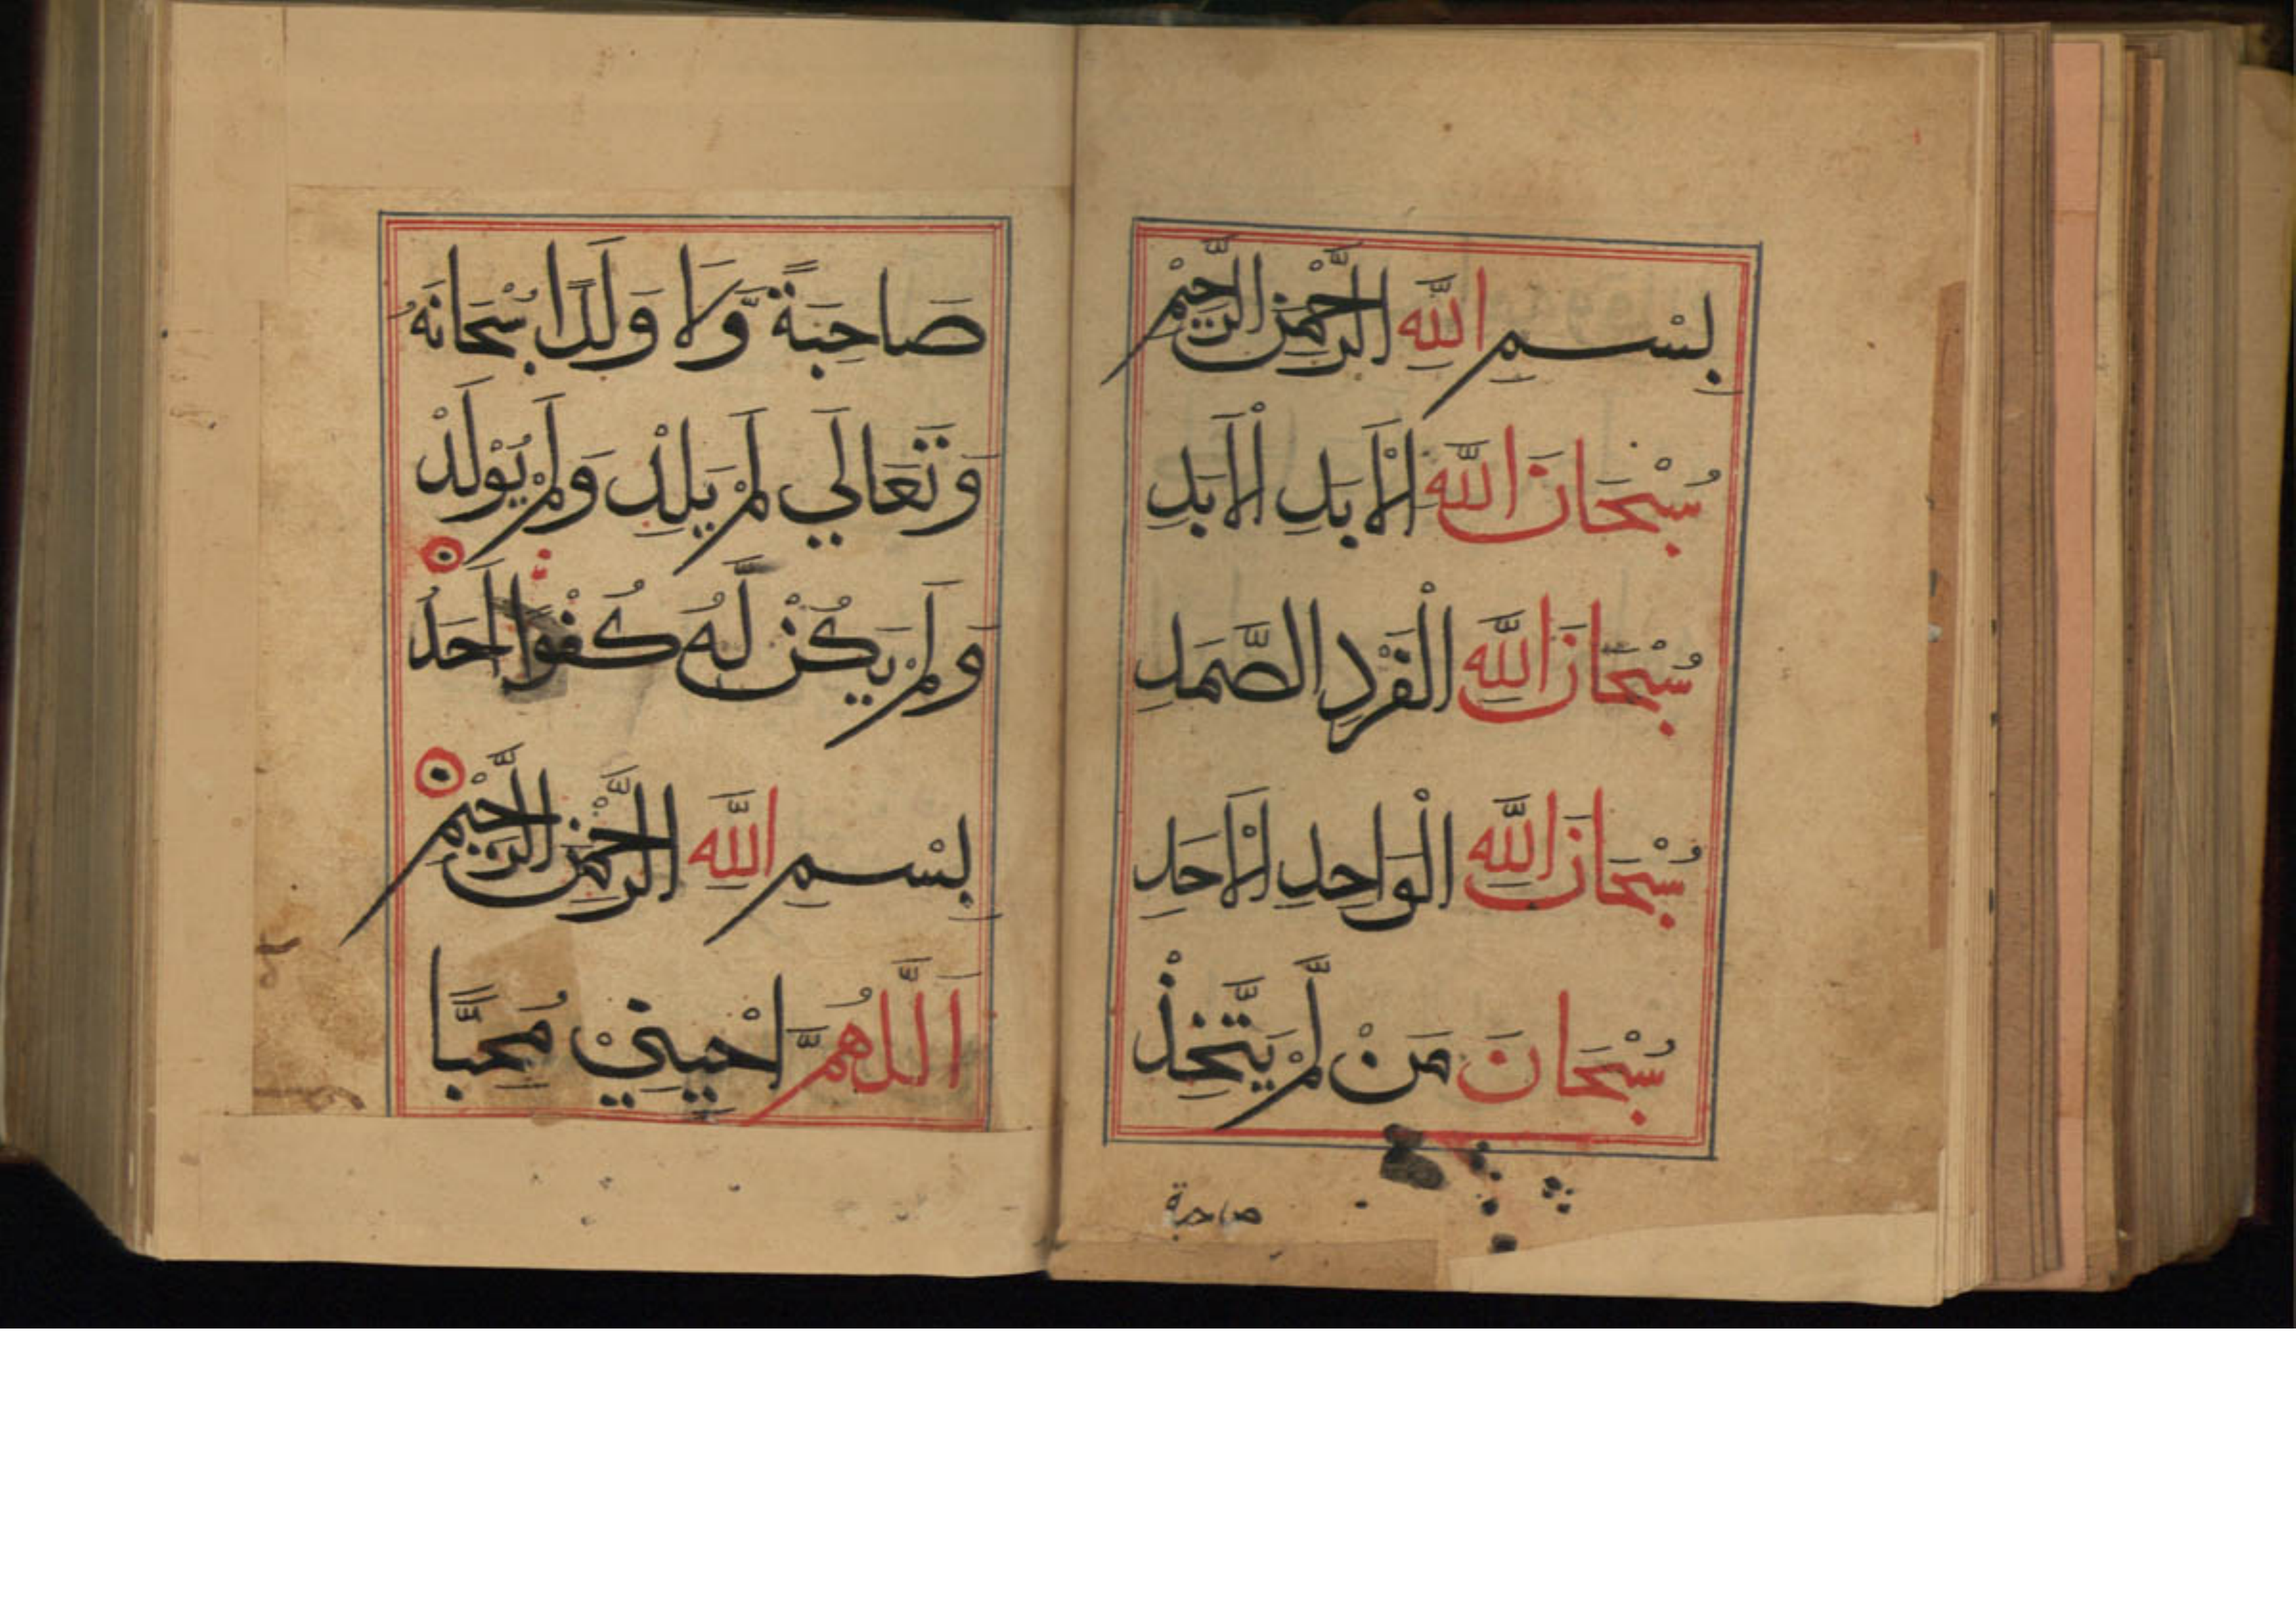 بِسْمِ اللَّهِ الرَّحْمٰنِ الرَّحِيْمِ
سُبْحَانَ اللَّهِ الْأَبَدِ الْأَبَدِ
سُبْحَانَ اللَّهِ الْفَرْدِ الصَّمَدِ
سُبْحَانَ اللَّهِ الْوَاحِدِ الْأَحَدِ
سُبْحَانَ مَنْ لَّمْ يَتَّخِذْ
صاحبة
صَاحِبَةً وَّلَا وَلَدًا سُبْحَانَهُ
وَتَعَالَي لَمْ يَلِدْ وَلَمْ يُوْلَدْ
وَلَمْ يَكُنْ لَّهُ كُفْوًا أَحَدُ
بِسْمِ اللَّهِ الرَّحْمٰنِ الرَّحِيْمِ
اَللَّهُمَّ اَحْيِنِيْ مُحِبًّا